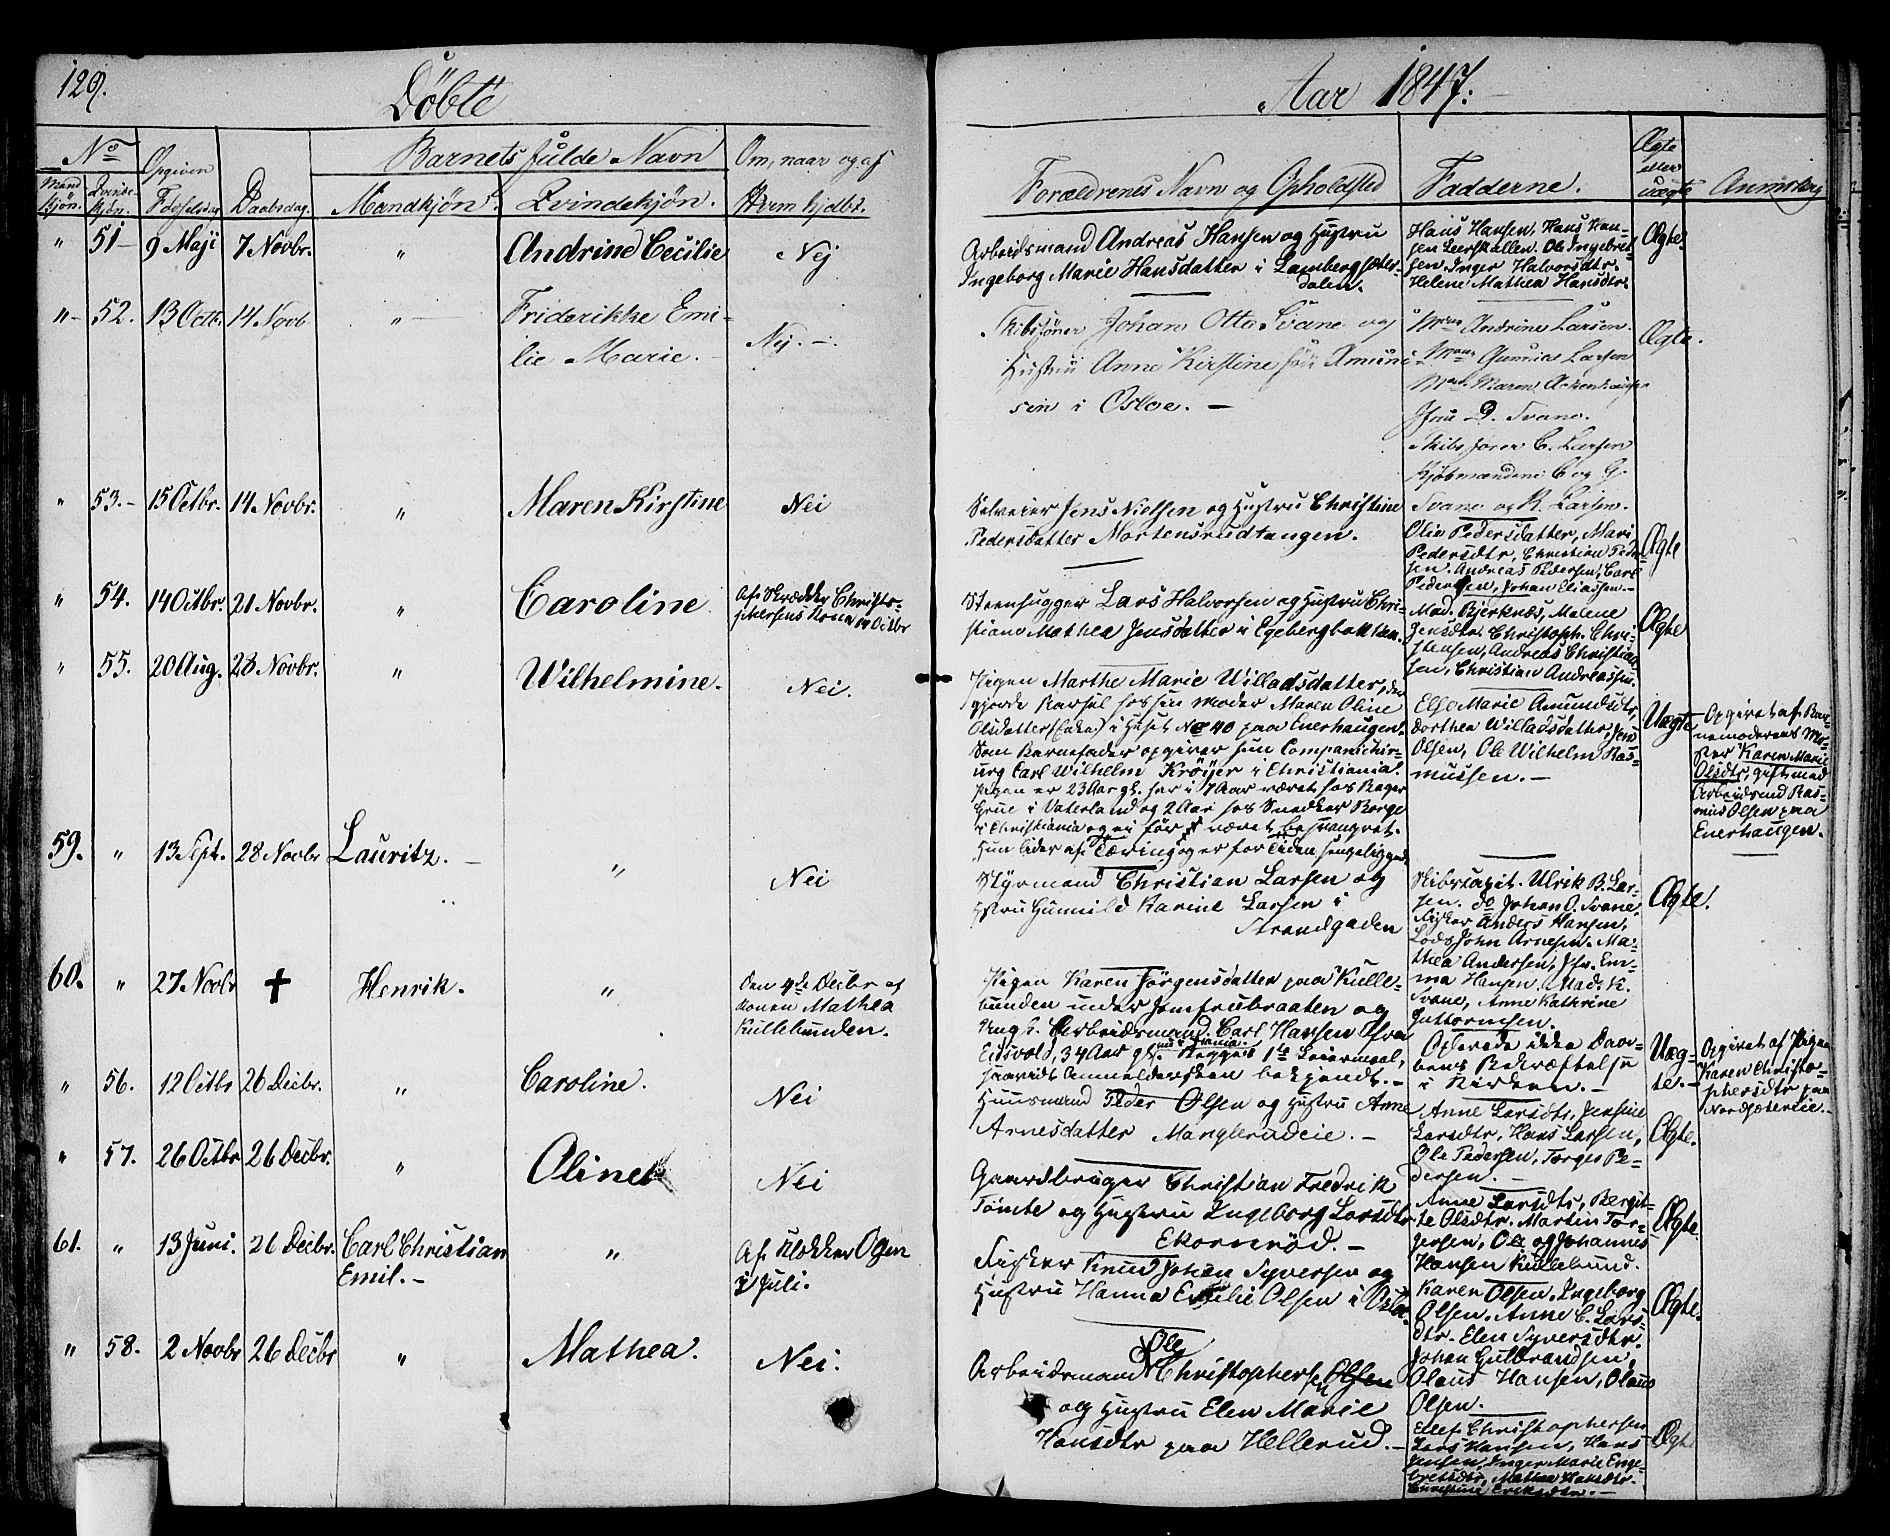 129.
Döbte
Aar 1847.
No
Mand kjøn.
Qvinde- kjøn.
Opgiven Fødselsdag
Daabsdag.
Barnets fulde Navn
Mandkjøn.
Qvindekjøn.
Om, naar og af
Hvem hjdbt.
Forældrenes Navn og Opholdsted
Fadderne.
Ægte eller uægte
Anmærkng
" 51 9 Maji 7 Novbr. " Andrine Cecilie Nej
Arbeidsmand Andreas Hansen og Hustru
Ingeborg Marie Hansdatter i Lambergsæter-
dalen.
Hans Hansen, Hans Han-
sen Leerskallen. Ole Ingebret-
sen. Inger Halvorsdtr.
Helene Mathea Hansdtr.
Ægte.
" 52. 13 Octb. 14 Novb " Friderikke Emi-
lie Marie. Nej.
Skibsfører Johan Otto Svane og
Hustru Anne Kirstine född Amund-
sen i Osloe.
Andrine Larsen.
Larsen
Maren
Jfru D. Svane.
C. Larsen
Kjøbmændene C og G.
Svane og R. Larsen.
Ægte.
" 53. 15 Octbr. 14 Novbr. " Maren Kirstine Nei
Selveier Jens Nielsen og Hustru Christine
Pedersdatter Mortensrudtangen.
Olia Pedersdatter, Mari
Pedersdtr, Christian Peder-
sen. Andreas Pedersen, Carl
Pedersen, Johan Eliassen.
Ægte
" 54. 14 Octbr. 21 Novbr. " Caroline
Af Skrædder Christo-
phersens Kone 14 Octbr
Steenhugger Lars Halvorsen og Hustru Chri-
stiane Mathea Jensdatter i Egebergbakken.
Mad. Bjerknæs, Malene
Jensdtr. Christoph. Chri-
stensen, Andreas Christian-
sen, Christian Andreassen.
Ægte
" 55. 20 Aug. 28 Novbr. " Wilhelmine. Nei.
Pigen Marthe Marie Willadsdatter, der
gjorde Barsel hos sin Moder Maren Oline
Olsdatter (Enke) i Huset No 40 paa Enerhaugen.
Som Barnefader opgiver hun Compannichir-
urg Carl Wilhelm Kröijer i Christiania.
Pigen er 23 Aar gl. har i 7 Aar været hos Bager
Grue i Vaterland og 2 Aar hos Snedker Borge
i Christiania og ei før været besvangret.
Hun lider af Tæring og er for Tiden sengeliggende.
Else Marie Amundsdtr,
Dorthea Willadsdatter, Jens
Olsen, Ole Wilhelm Ras-
mussen.
Uægte
Opgivet af Bar-
nemoderens Mo-
ster Karen Marie
Olsdtr, gift med
Arbeidsmd Ras-
mus Olsen paa
Enerhaugen.
59. " 13 Sept. 28 Novbr Lauritz. " Nei
Styrmand Christian Larsen og
Hstru Gunnild Karine Larsen i
Strandgaden
Skibscapit. Ulrik B. Lar-
sen. do Johan O. Svane,
Fisker Anders Hansen,
Lods John Arnesen. Ma-
thea Andersen, Jfr. Em-
ma Hansen, Mad. K.
Svane, Anne Kathrine
Guttormsen.
Ægte!
60. " 27. Novbr † Henrik. "
Den 4de Decbr af
Konen Mathea
Kullebunden.
Pigen Karen Jörgensdatter paa Kulle-
bunden under Jomfrubraaten og
Ungk. Arbeidsmand Carl Hansen Ifra
Eidsvold, 34 Aar gl. Begges 1ste Leiermaal,
saavidt Anmeldersken bekjendt.
Oplevede ikke Daa-
bens Bekræftelse
i Kirken.
Uæg-
te.
Opgivet af Pigen
Karen Christo-
phersdtr paa
Nordsætereie.
" 56. 12 Octbr 26 Decbr. " Caroline. Nei
Huusmand Peder Olsen og Hustru Anne
Arnesdatter Manglerudeie.
Anne Larsdtr, Jensine
Larsdtr, Hans Larsen,
Ole Pedersen, Torges Pe-
dersen.
Ægte.
" 57. 26 Octbr 26 Decbr. " Oline Nei
Gaardbruger Christian Fredrik
Tömte og Hustru Ingeborg Larsdtr
Ekornröd.
Anne Larsdtr, Bergit-
te Olsdtr. Martin Tor-
gersen, Ole og Johannes
Hansen Kullebund.
Ægte.
61. " 13 Juni. 26 Decbr. Carl Christian
Emil. "
Af Klokker Olsen
i Juli.
Fisker Knud Johan Syversen og
Hustru Hanna Emilie Olsen i Oslo.
Karen Olsen. Ingeborg
Olsen. Anne C. Lars-
dtr. Elen Syversdtr.
Johan Gulbrandsen,
Olaus Hansen, Olaus
Olsen.
Ægte.
" 58. 2 Novbr 26 Decbr " Mathea. Nei.
Ole
Arbeidsmand Christophersen Olsen
og Hustru Elen Marie
Hansdtr paa Hellerud.
Ellef Christophersen
Lars Hansen, Hans
Jensen, Inger Marie Enge-
bretsdtr, Mathea Hansdtr.
Christine Eriksdtr.
Ægt